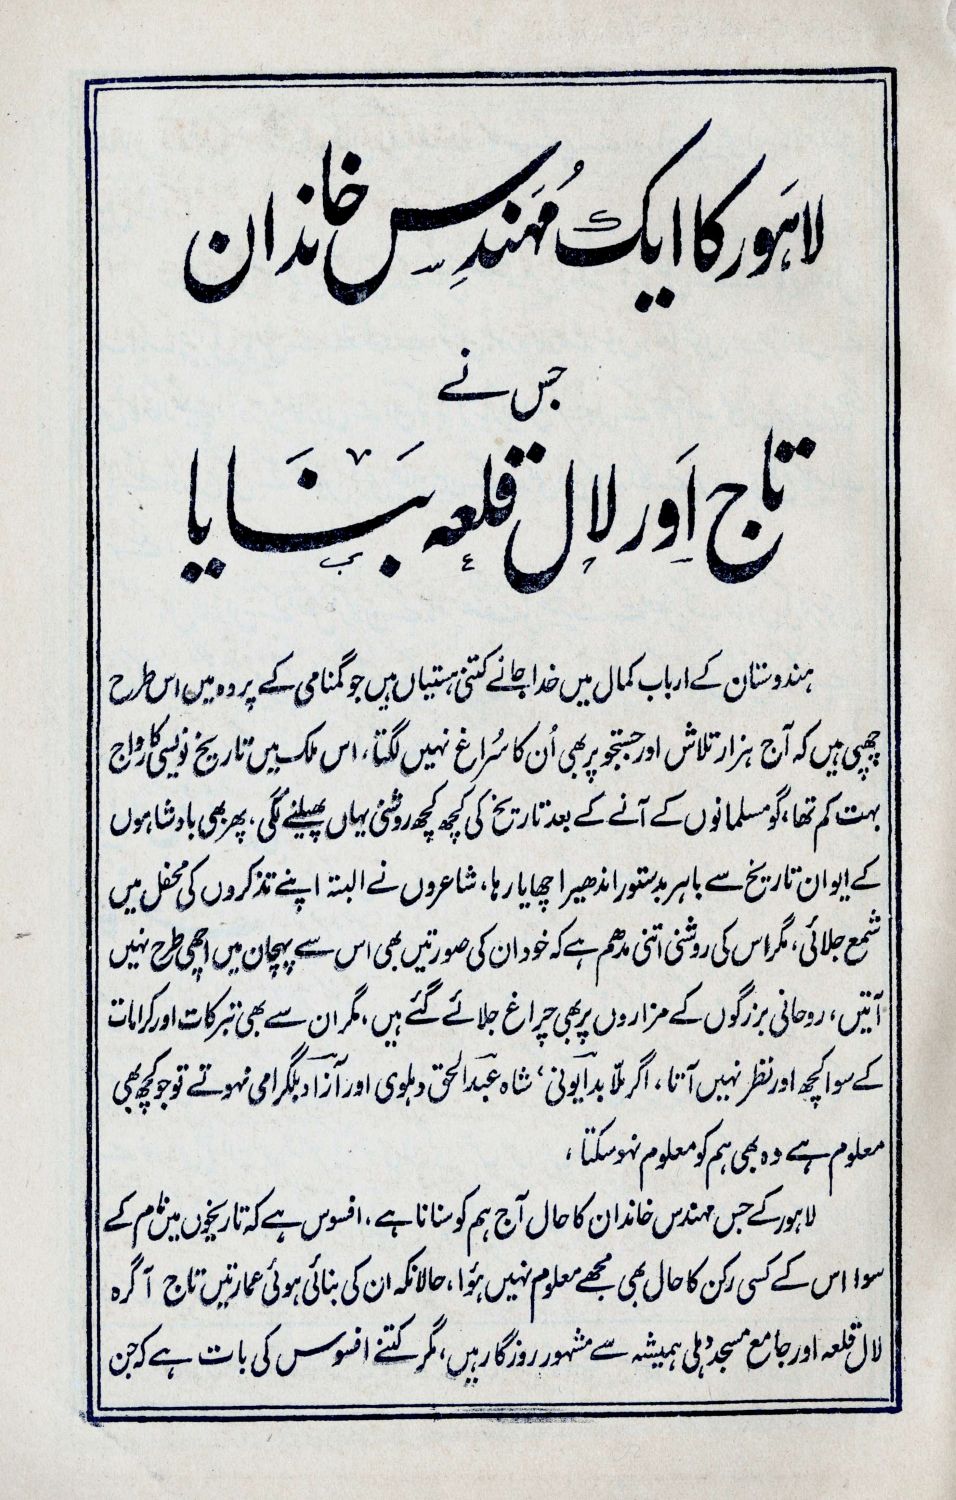 لاہور کا ایک مُہندِس خاندان
جس نے
تاج اَور لال قلعہ بَنَایا
ہندوستان کے ارباب کمال میں خدا جانے کتنی ہستیاں ہیں جو گمنامی کے پردہ میں اس طرح
چھپی ہیں کہ آج ہزار تلاش اور جستجو پر بھی اُن کا سُراغ نہیں لگتا، اس ملک میں تاریخ نویسی کا رواج
بہت کم تھا، گو مسلمانوں کے آنے کے بعد تاریخ کی کچھ کچھ روشنی یہاں پھیلنے لگی، پھر بھی بادشاہوں
کے ایوان تاریخ سے باہر بدستور اندھیرا چھایا رہا، شاعروں نے البتہ اپنے تذکروں کی محفل میں
شمع جلائی، مگر اس کی روشنی اتنی مدھم ہے کہ خود ان کی صورتیں بھی اس سے پہچان میں اچھی طرح نہیں
آتیں، روحانی بزرگوں کے مزاروں پر بھی چراغ جلائے گئے ہیں، مگر ان سے بھی تبرکات اور کرامات
کے سوا کچھ اور نظر نہیں آتا، اگر ملّا بدایونی، شاہ عبدالحق دہلوی اور آزاد بلگرامی نہوتے تو جو کچھ بھی
معلوم ہے وہ بھی ہم کو معلوم نہو سکتا،
لاہور کے جس مہندس خاندان کا حال آج ہم کو سنانا ہے، افسوس ہے کہ تاریخوں میں نام کے
سوا اس کے کسی رکن کا حال بھی مجھے معلوم نہیں ہؤا، حالانکہ ان کی بنائی ہوئی عمارتیں تاج آگرہ
لال قلعہ اور جامع مسجد دہلی ہمیشہ سے مشہور روزگار ہیں، مگر کتنے افسوس کی بات ہے کہ جن